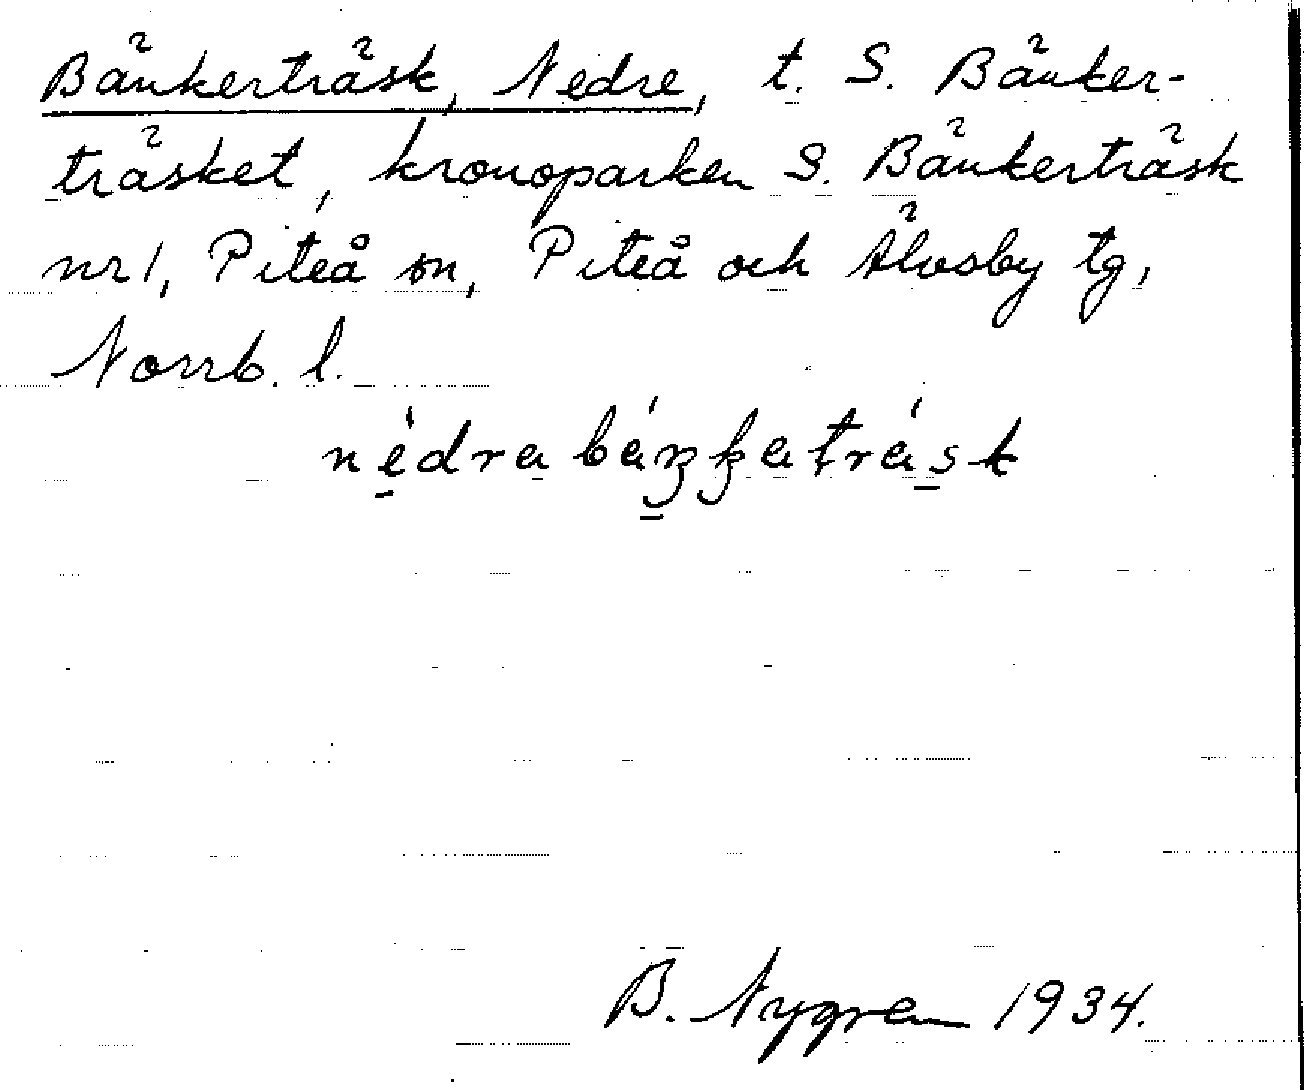 Bänkerträsk, Nedre, t. S. Bänker-
träsket, kronoparken S. Bänkerträsk
nr 1, Piteå sn, Piteå och Älvsby tg,
Norrb. l.
B. Nygren 1934.